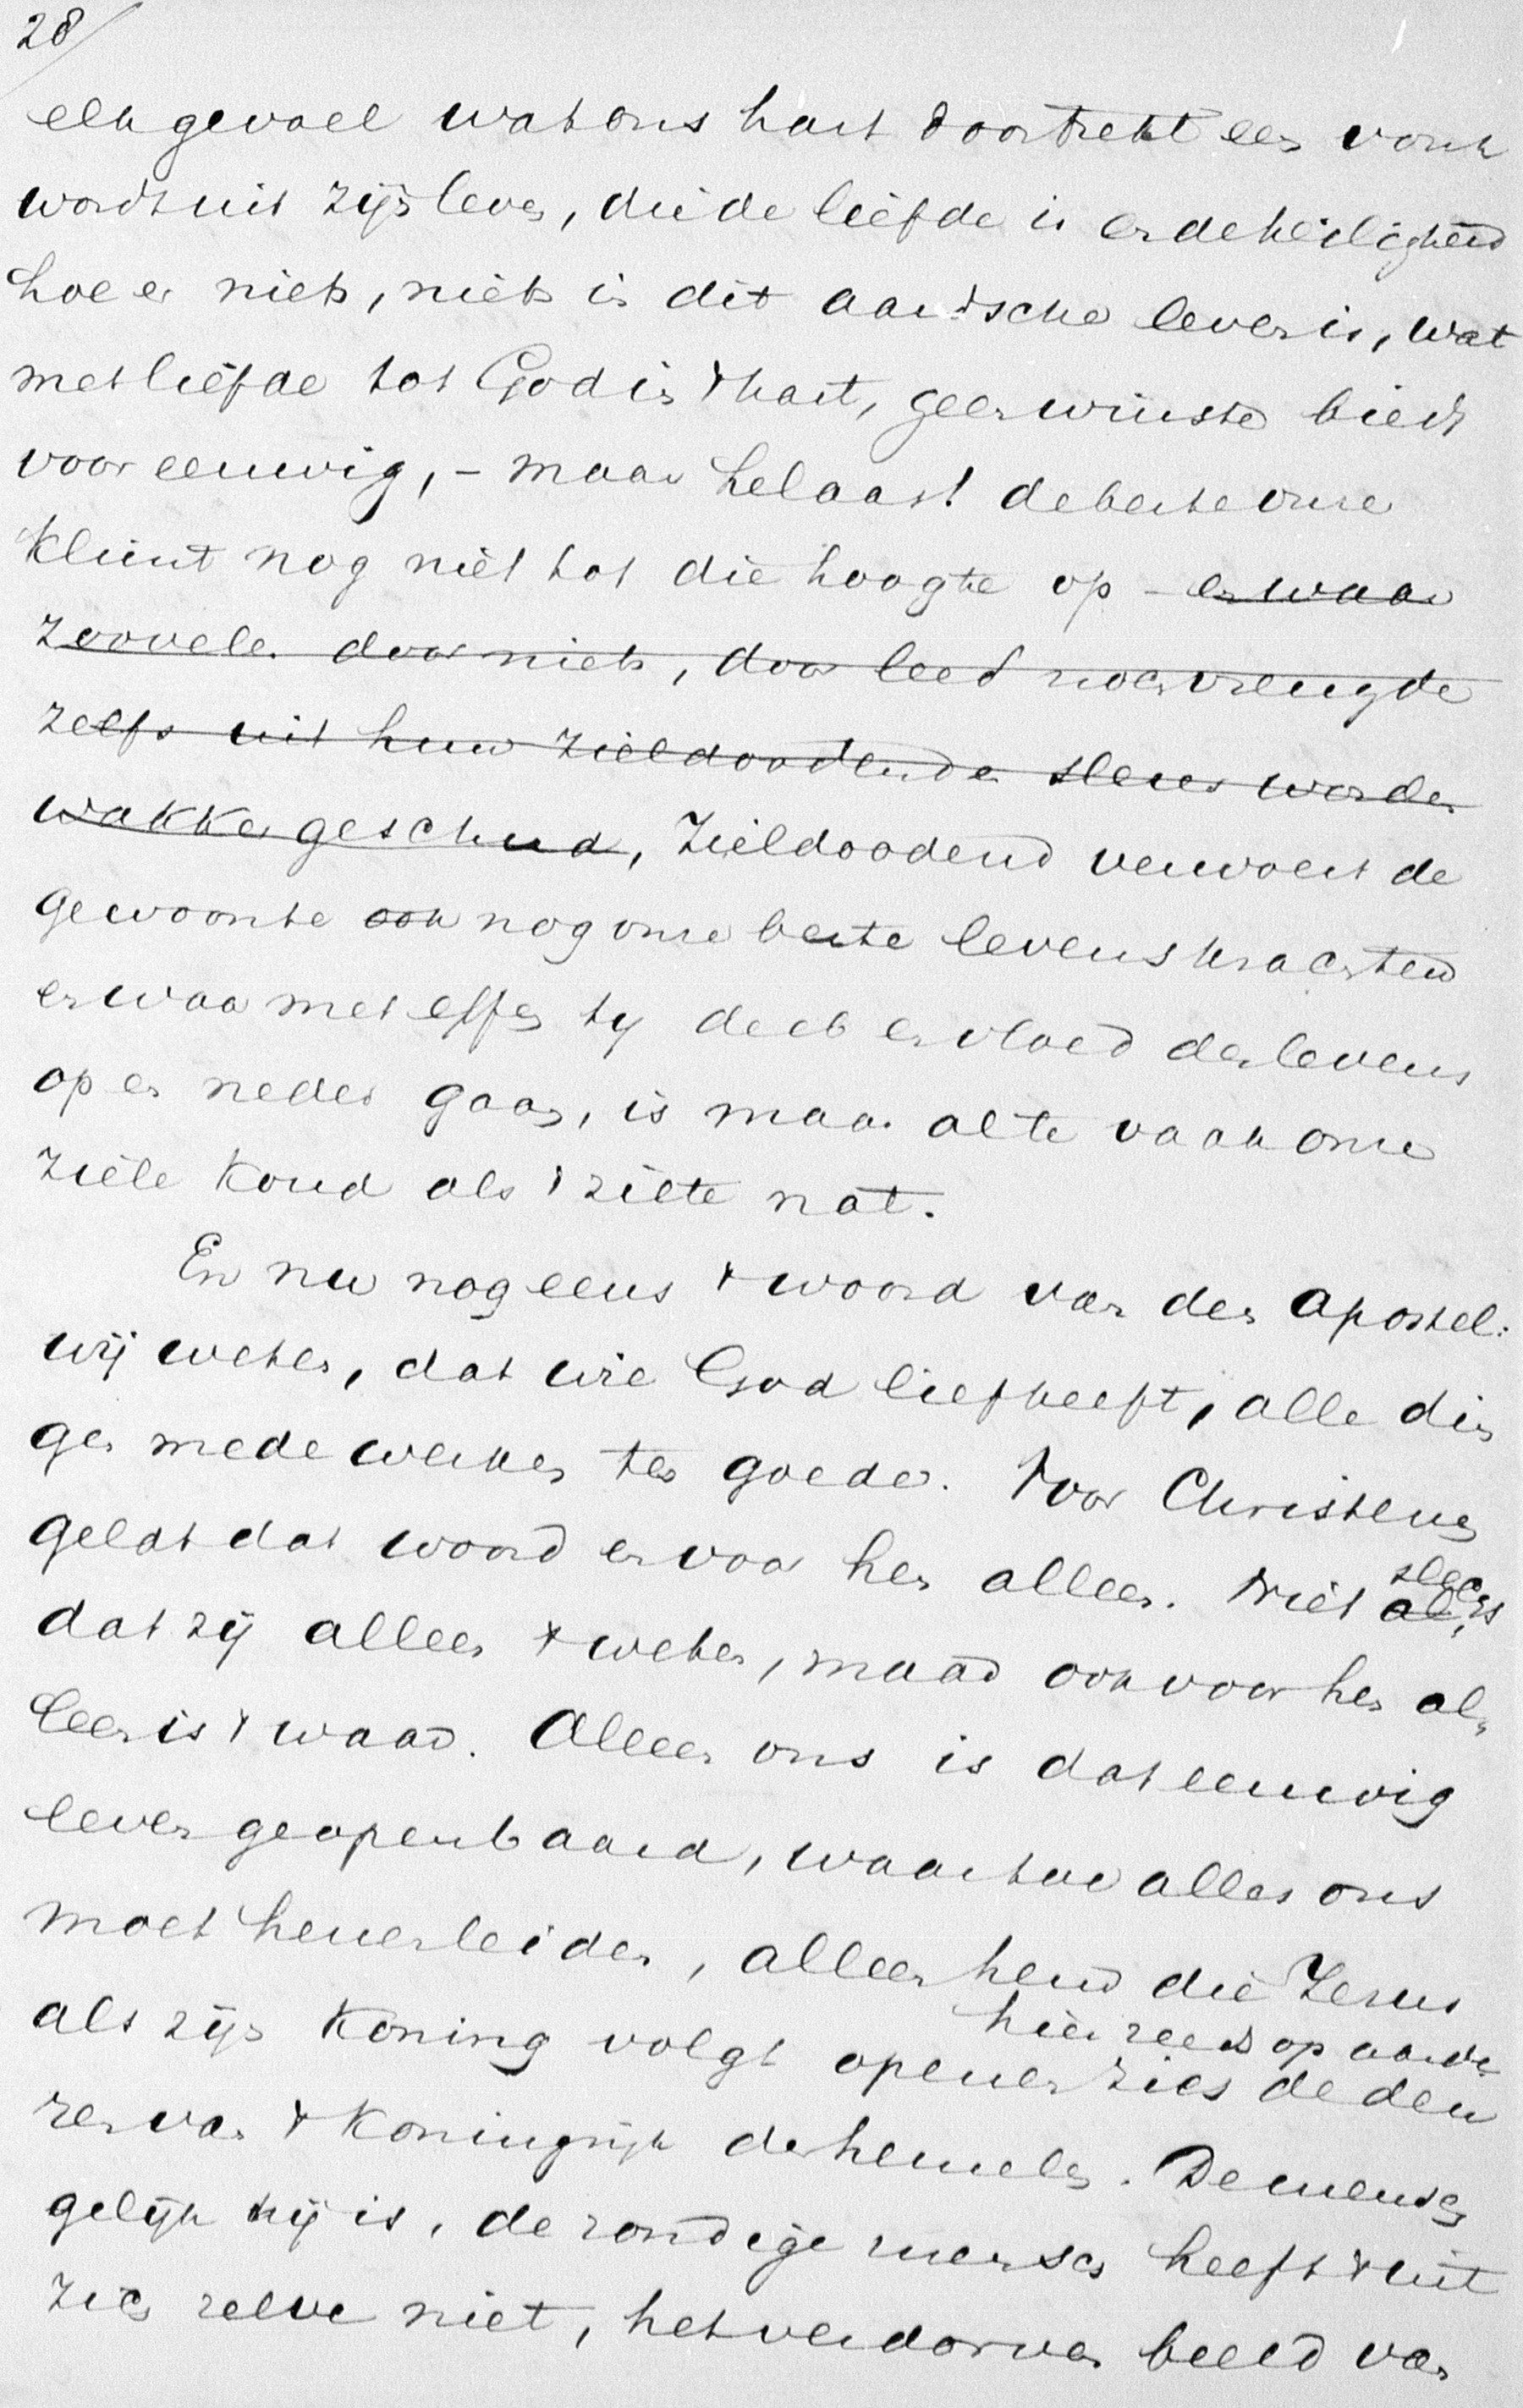 28/
elk gevoel wat ons hart doortrekt een vonk
wordt uit zijn leven, die de liefde is en de heiligheid
hoe er niets, niets in dit aardsche leven is, wat
met liefde tot God in 't hart, geen winste biedt
voor eeuwig, - maar helaas! de beste onzer
klimt nog niet tot die hoogte op - en waar
zoovelen door niets, door leed noch vreugde
zelfs uit hun zieldoodenden sleur worden
wakker geschud, zieldoodend verwoest de
gewoonte ook nog onze beste levenskrachten
en waar met effen tij de eb en vloed des levens
op en neder gaan, is maar al te vaak onze
ziele koud als 't zilte nat.
En nu nog eens 't woord van den Apostel:
wij weten, dat wie God liefheeft, alle din
gen medewerken ten goede. Voor Christenen
geldt dat woord en voor hen alleen. Niet slechts
dat zij alleen 't weten, maar ook voor hen al„
leen is 't waar. Alleen ons is dat eeuwig
leven geopenbaard, waartoe alles ons
moet henenleiden, alleen hem die Jezus
als zijn Koning volgt openen zich hier reeds op aarde de deu
ren van 't Koningrijk der hemelen. De mensch
gelijk hij is, de zondige mensch heeft 't uit
zich zelve niet, het verdorven beeld van